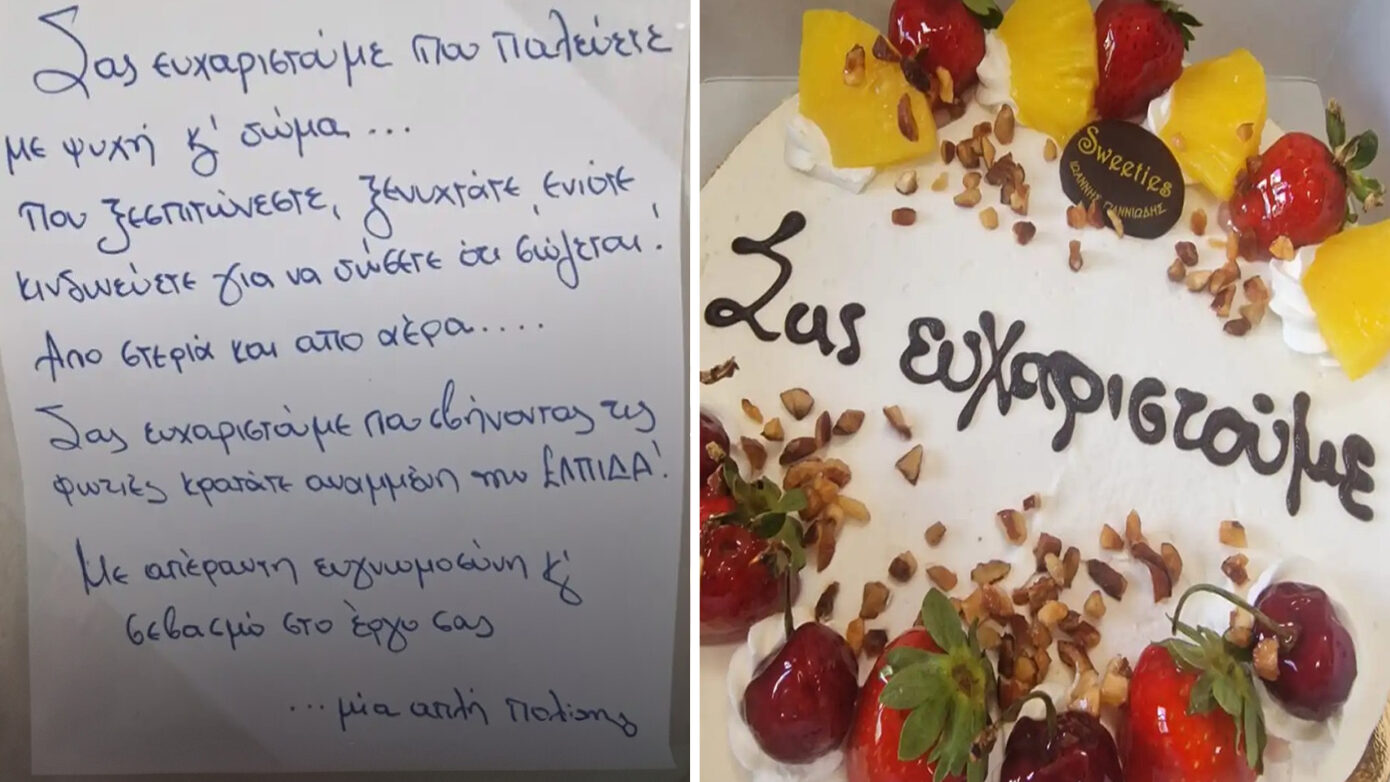 Σας ευχαριστούμε που παλεύετε
με ψυχή κ' σώμα ...
Που ξεσπιτώνεστε, ξενυχτάτε, ενίοτε
κινδυνεύετε για να σώσετε ότι σώζεται!
Απο στεριά και απο αέρα....
Σας ευχαριστούμε που σβήνοντας τις
φωτιές κρατάτε αναμμένη την ΕΛΠΙΔΑ!
Με απέραντη ευγνωμοσύνη κ'
σεβασμό στο έργο σας
...μία απλή πολίτης
Sweeties
ΙΩΑΝΝΗΣ ΓΙΑΝΝΙΩΔΗΣ
Σας ευχαριστούμε